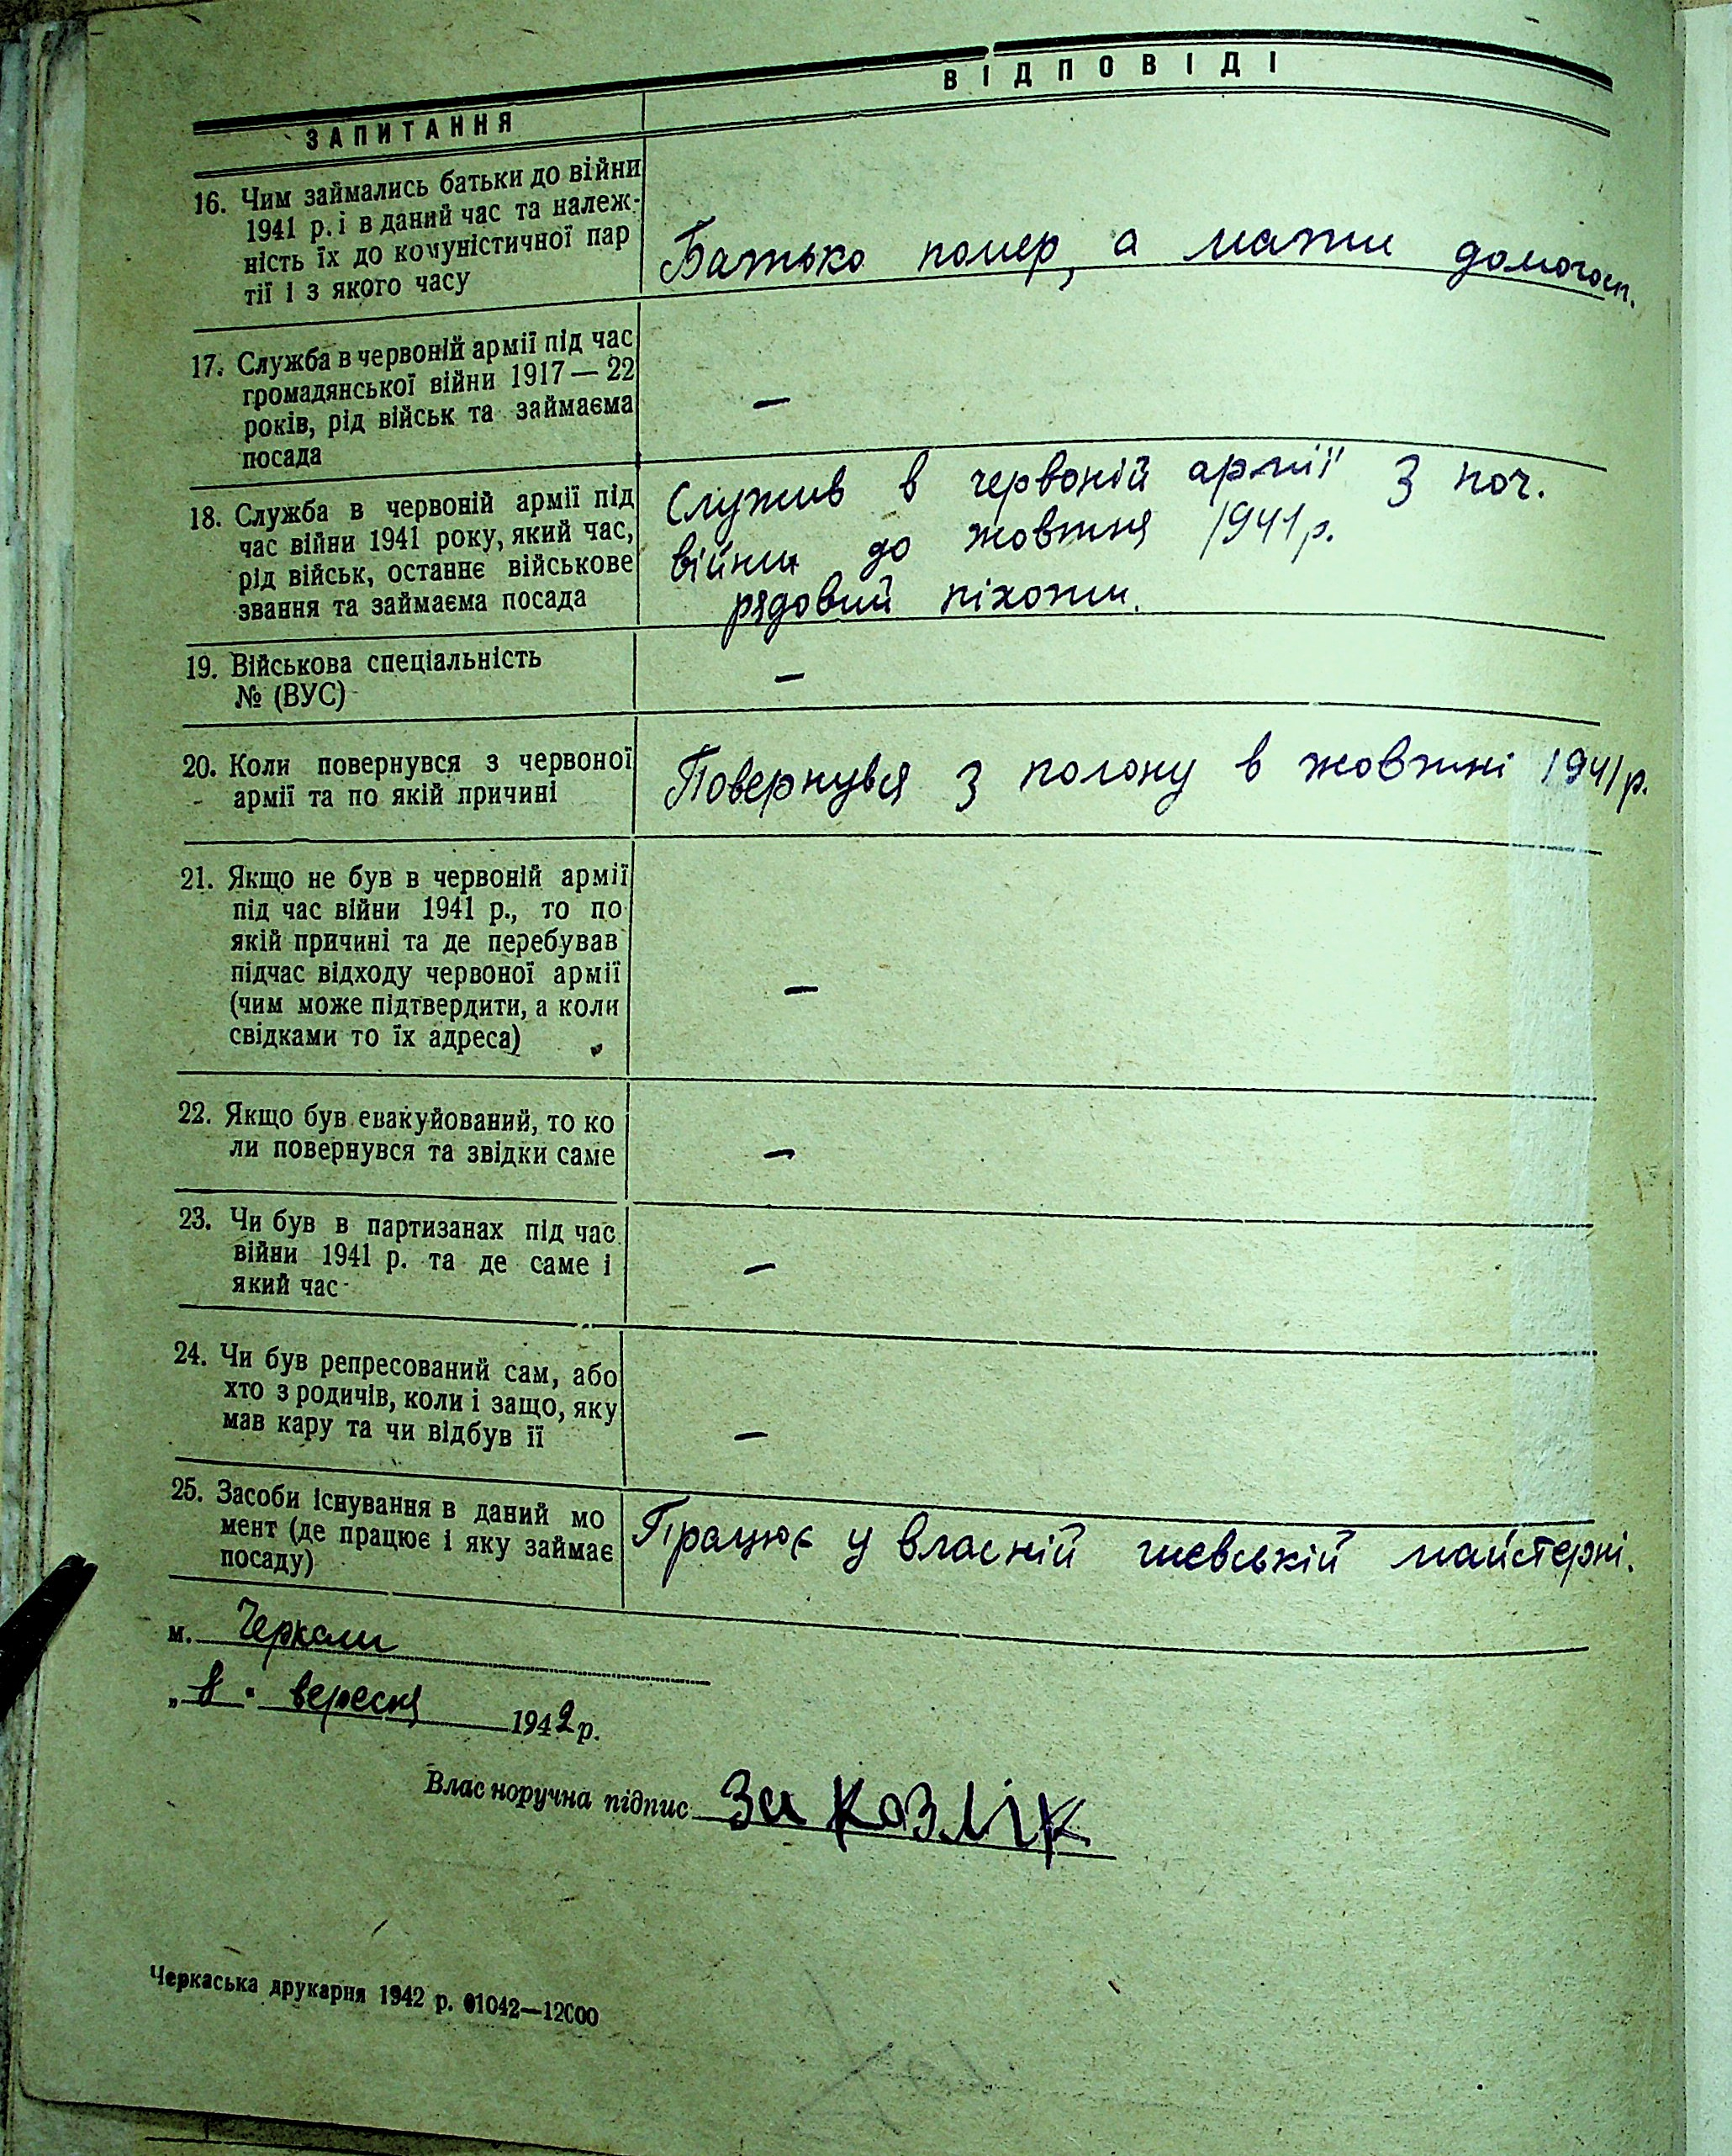 ЗАПИТАННЯ
ВІДПОВІДІ
16. Чим займались батьки до війни
1941 р. і в даний час та належ-
ність їх до комуністичної пар
тії і з якого часу
Батько помер, а мати домогосп.
17. Служба в червоній армії під час
громадянської війни 1917 — 22
років, рід військ та займаєма
посада
—
18. Служба в червоній армії під
час війни 1941 року, який час,
рід військ, останнє військове
звання та займаєма посада
Служив в червоній армії з поч.
війни до жовтня 1941 р.
рядовий піхоти.
19. Військова спеціальність
№ (ВУС)
—
20. Коли повернувся з червоної
армії та по якій причині
Повернувся з полону в жовтні 1941 р.
21. Якщо не був в червоній армії
під час війни 1941 р., то по
якій причині та де перебував
підчас відходу червоної армії
(чим може підтвердити, а коли
свідками то їх адреса)
—
22. Якщо був евакуйований, то ко
ли повернувся та звідки саме
—
23. Чи був в партизанах під час
війни 1941 р. та де саме і
який час
—
24. Чи був репресований сам, або
хто з родичів, коли і защо, яку
мав кару та чи відбув її
—
25. Засоби існування в даний мо
мент (де працює і яку займає
посаду)
Працює у власній шевській майстерні.
м. Черкаси
„8" вересня 1942 р.
Власноручна підпис За Козлік
Черкаська друкарня 1942 р. 01042—12000